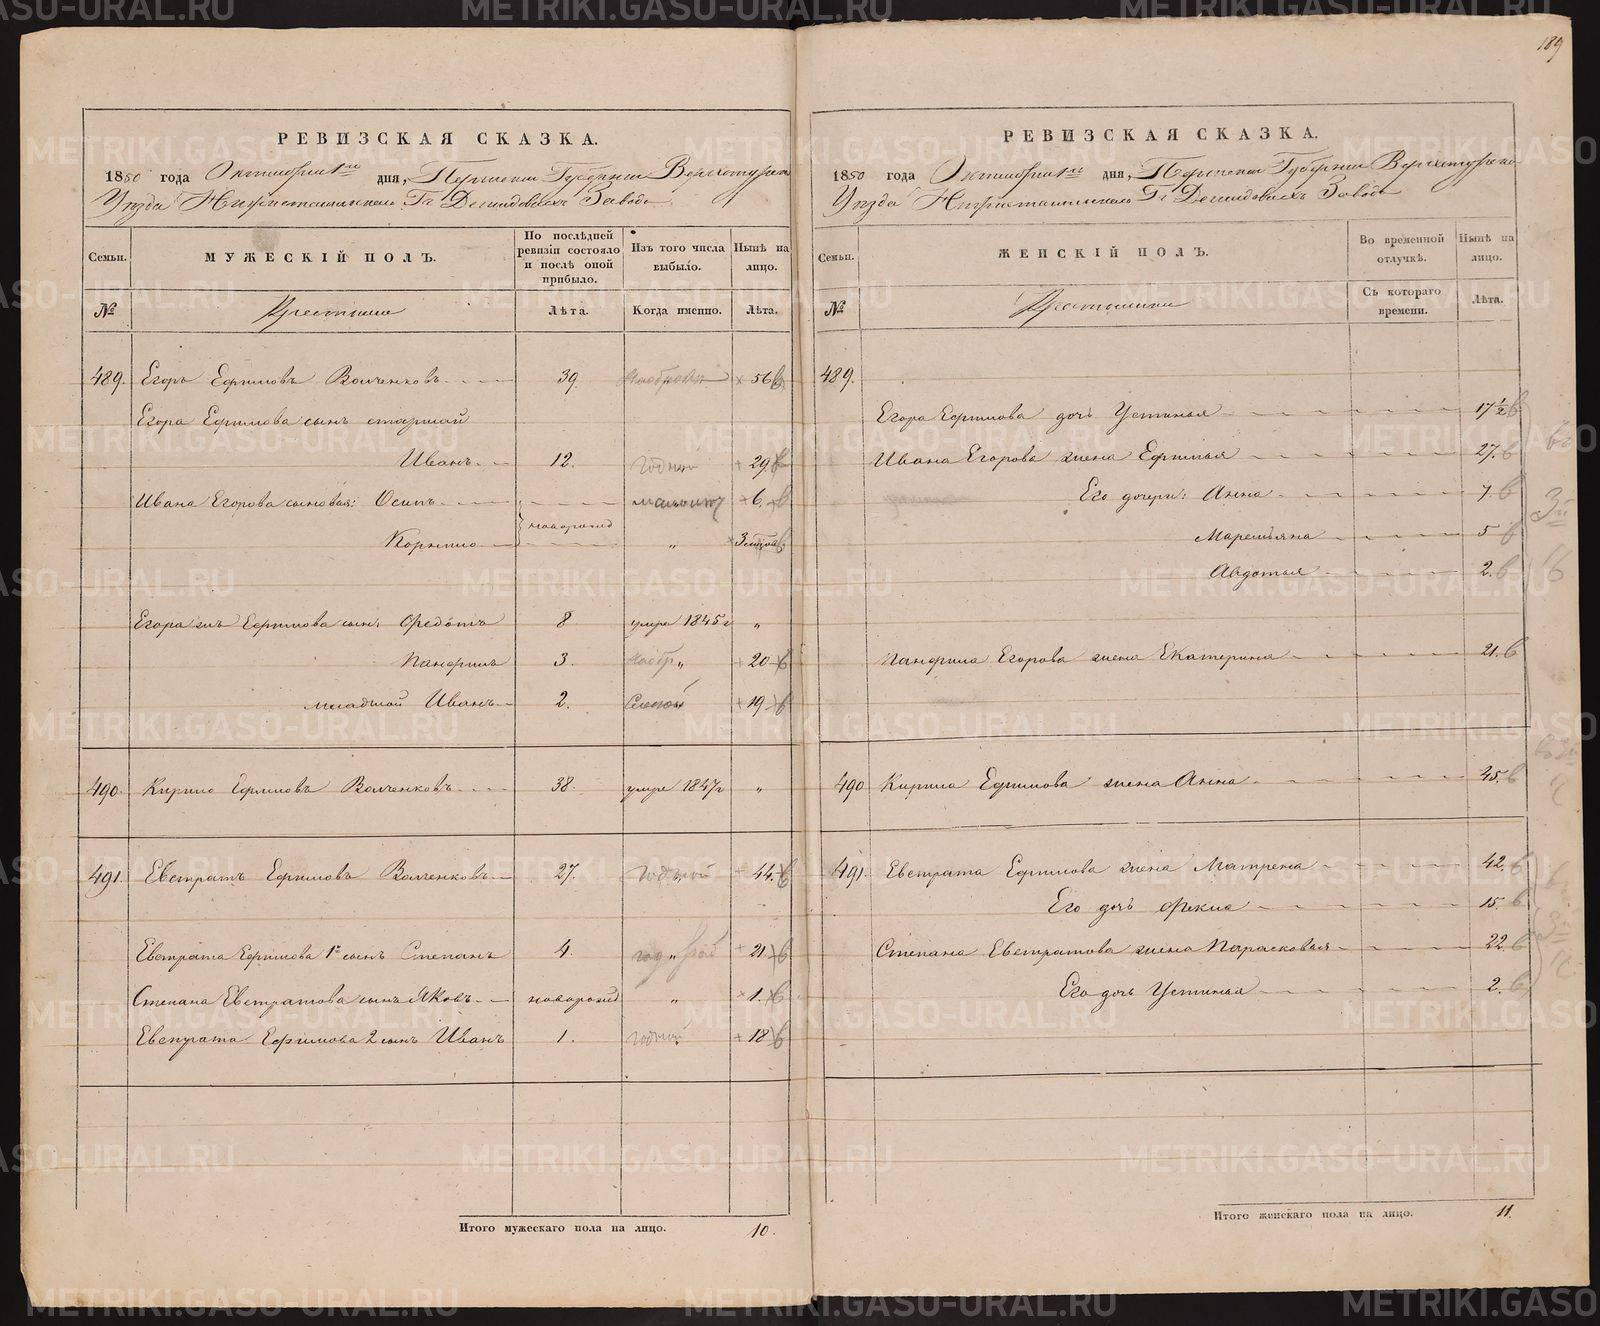 189
РЕВИЗСКАЯ СКАЗКА.
1850 года Октября 1го дня, Пермской Губернии Верхотурскаго
Уезда Нижнетагильскаго Гг. Демидовыхъ Завода
Семьи.
МУЖЕСКІЙ ПОЛЪ.
По послѣдней ревизіи состояло и послѣ оной прибыло.
Изъ того числа выбыло.
Нынѣ на лицо.
№
Крестьяне
Лѣта.
Когда именно.
Лѣта.
489. Егоръ Ефимовъ Волченковъ 39. 56
Егора Ефимова сынъ старшой
Иванъ 12. годной 29
Ивана Егорова сыновья: Осипъ 6.
новорожд
Корнило „ 3
Егора жъ Ефимова сын. Федотъ 8 умре 1845 г „
Панфилъ 3. „ 20
младшой Иванъ 2. 19
490. Кирило Ефимовъ Волченковъ 38. умре 1847 г „
491. Евстратъ Ефимовъ Волченковъ 27. годной 44.
Евстрата Ефимова 1й сынъ Степанъ 4. „ 21
Степана Евстратова сынъ Яковъ новорожд „ 1.
Евстрата Ефимова 2 сынъ Иванъ 1. годной 18
Итого мужескаго пола на лицо. 10.
РЕВИЗСКАЯ СКАЗКА.
1850 года Октября 1го дня, Пермской Губернии Верхотурскаго
Уезда Нижнетагильскаго Гг. Демидовыхъ Завода
Семьи.
ЖЕНСКІЙ ПОЛЪ.
Во временной отлучкѣ.
Нынѣ на лицо.
№
Крестьянки
Съ котораго времени.
Лѣта.
489.
Егора Ефимова дочь Устинья 17 1/2
Ивана Егорова жена Ефимья 27.
Его дочери: Анна 7.
Маремьяна 5
Авдотья 2.
Панфила Егорова жена Екатерина 21.
490 Кирила Ефимова жена Анна 45.
491. Евстрата Ефимова жена Матрена 42.
Его дочь Фекла 15.
Степана Евстратова жена Парасковья 22.
Его дочь Устинья 2.
Итого женскаго пола на лицо. 11.
METRIKI.GASO-URAL.RU